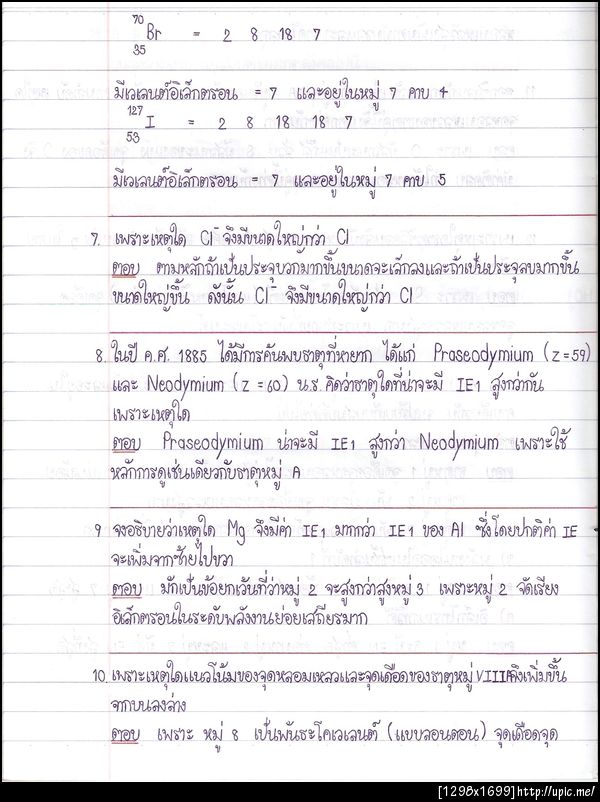 70
Br = 2 8 18 7
35
มีเวเลนต์อิเล็กตรอน = 7 และอยู่ในหมู่ 7 คาบ 4
127
I = 2 8 18 18 7
53
มีเวเลนต์อิเล็กตรอน = 7 และอยู่ในหมู่ 7 คาบ 5
7. เพราะเหตุใด Cl⁻ จึงมีขนาดใหญ่กว่า Cl
ตอบ ตามหลักถ้าเป็นประจุบวกมากขึ้นขนาดจะเล็กลงและถ้าเป็นประจุลบมากขึ้น
ขนาดใหญ่ขึ้น ดังนั้น Cl⁻ จึงมีขนาดใหญ่กว่า Cl
8. ในปี ค.ศ. 1885 ได้มีการค้นพบธาตุที่หายาก ได้แก่ Praseodymium (z=59)
และ Neodymium (z=60) น.ร. คิดว่าธาตุใดที่น่าจะมี IE1 สูงกว่ากัน
เพราะเหตุใด
ตอบ Praseodymium น่าจะมี IE1 สูงกว่า Neodymium เพราะใช้
หลักการดูเช่นเดียวกับธาตุหมู่ A
9 จงอธิบายว่าเหตุใด Mg จึงมีค่า IE1 มากกว่า IE1 ของ Al ซึ่งโดยปกติค่า IE
จะเพิ่มจากซ้ายไปขวา
ตอบ มักเป็นข้อยกเว้นที่ว่าหมู่ 2 จะสูงกว่าสูงหมู่ 3 เพราะหมู่ 2 จัดเรียง
อิเล็กตรอนในระดับพลังงานย่อยเสถียรมาก
10. เพราะเหตุใดแนวโน้มของจุดหลอมเหลวและจุดเดือดของธาตุหมู่ VIIIA ถึงเพิ่มขึ้น
จากบนลงล่าง
ตอบ เพราะ หมู่ 8 เป็นพันธะโคเวเลนต์ (แบบลอนดอน) จุดเดือดจุด
[1298x1699]http://upic.me/